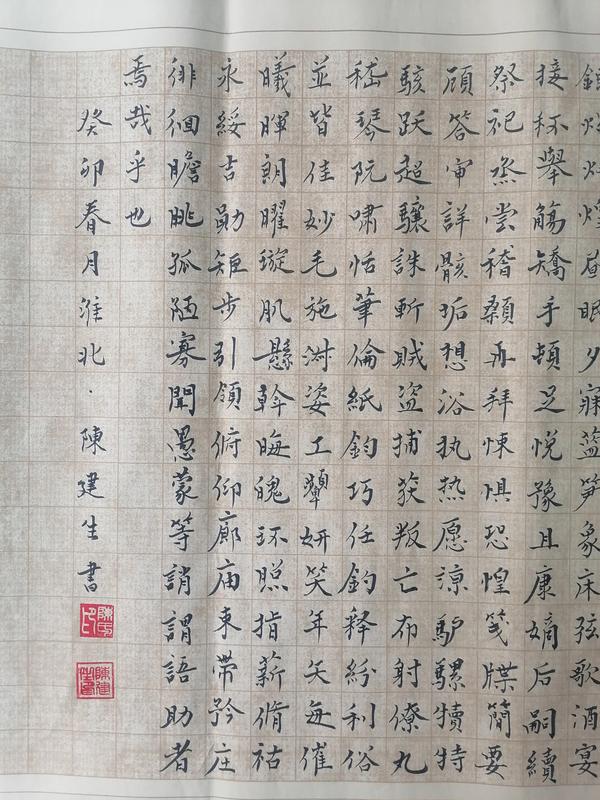 眠夕寐籃笋象床弦歌酒宴
接杯舉觴矯手頓足悅豫且康嫡后嗣續
祭祀烝嘗稽顙再拜悚懼恐惶箋牒簡要
顧答审詳骸垢想浴执热愿涼驴騾犢特
駭跃超驤誅斬賊盜捕获叛亡布射僚丸
嵇琴阮嘯恬筆倫紙鈞巧任釣释紛利俗
並皆佳妙毛施淑姿工顰妍笑年矢每催
曦暉朗曜璇肌懸斡晦魄环照指薪脩祜
永綏吉勛矩步引領俯仰廊庙束带矜庄
徘徊瞻眺孤陋寡聞愚蒙等誚謂語助者
焉哉乎也
癸卯春月淮北·陳建生書